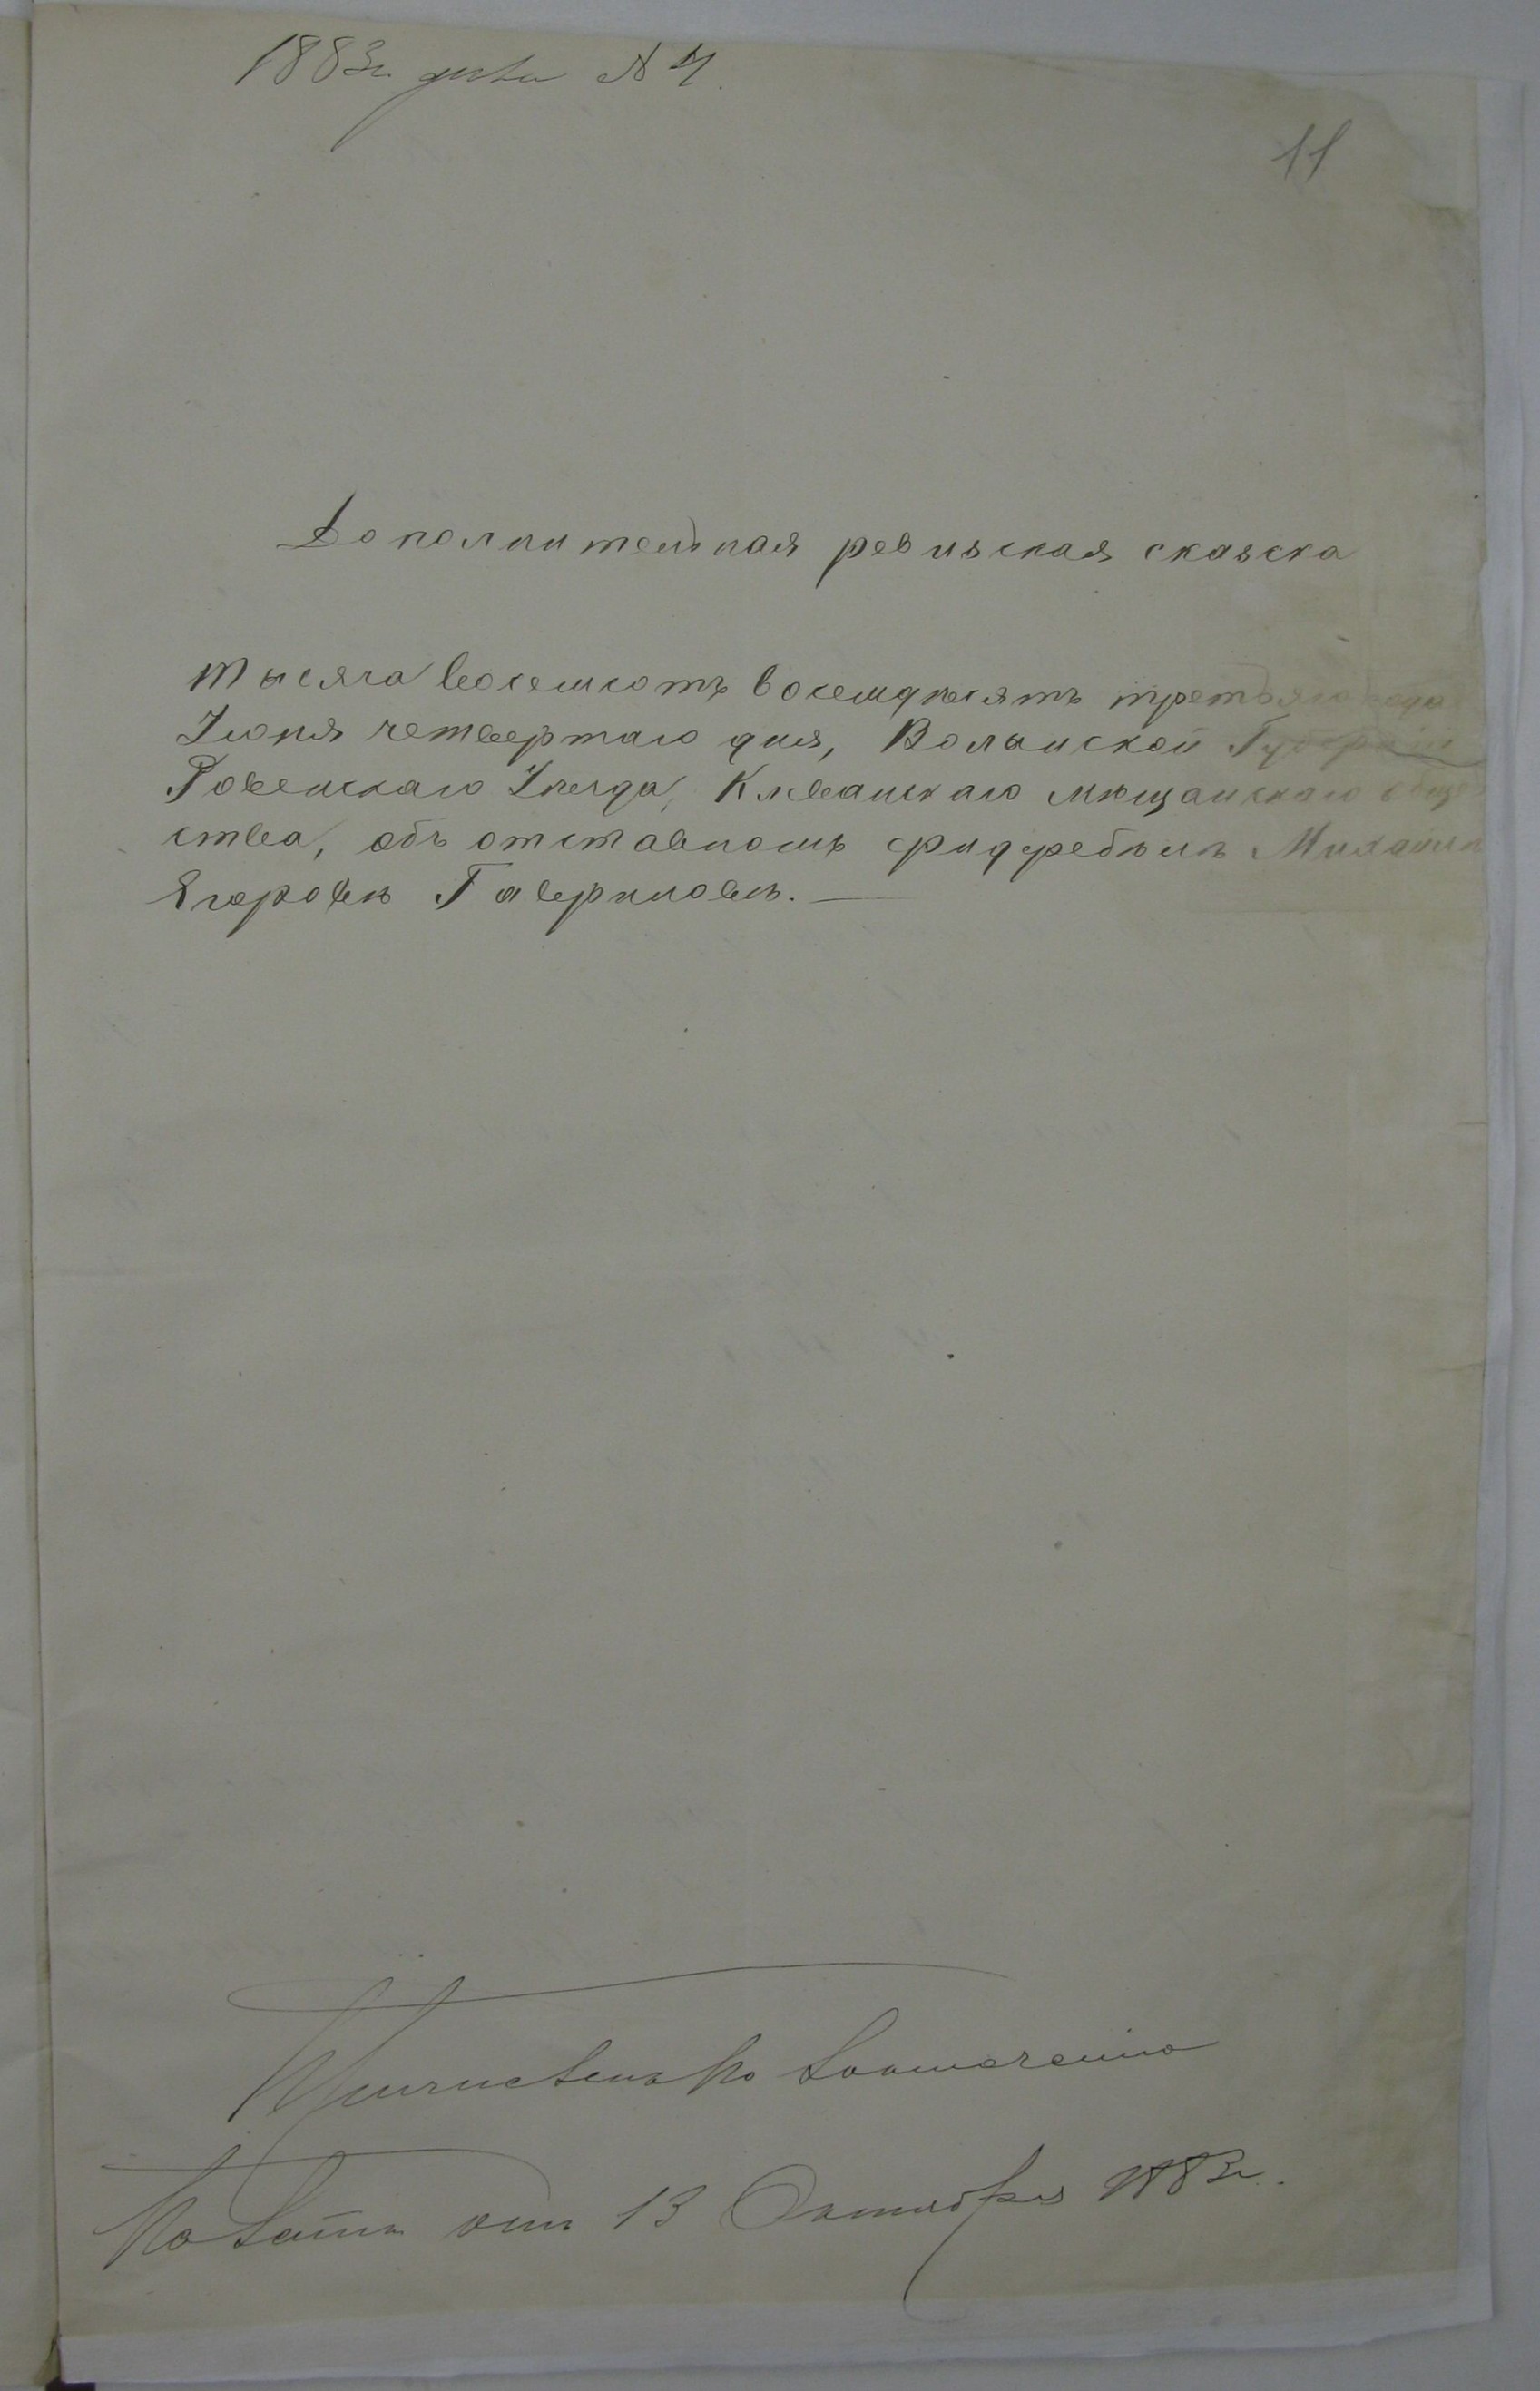 1883 г. № 4.
11
Дополнительная ревизская сказка
тысяча восемсотъ восемдѣсятъ третьяго года
Іюня четвертаго дня, Волынской Губерніи
Ровенскаго Уѣзда, Клеванскаго мѣщанскаго обще
ства, объ отставномъ Михаилѣ
Егоровѣ Гавриловѣ.
Причисленъ по
Палаты отъ 13 Октября 1883 г.